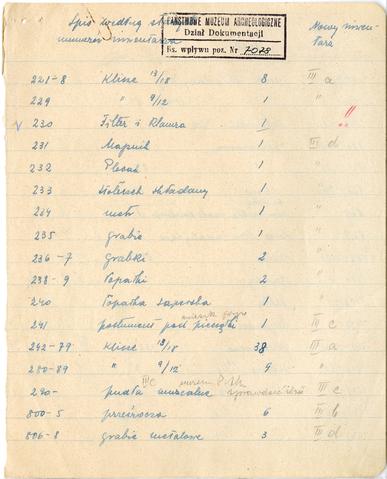 Spis według
numerów inwentarza
PAŃSTWOWE MUZEUM ARCHEOLOGICZNE
Dział Dokumentacji
Ks. wpływu poz. Nr 7028
Nowy inwen-
tarz
221-8 Klisze 13/18 8 III a
229 " 9/12 1 "
230 Filter 1 !!
231 1 III d
232 Plecak 1 "
233 składany 1 "
234 metr 1 "
235 grabie 1 "
236-7 Grabki 2 "
238-9 Łopatki 2 "
240 Łopatka saperska 1 "
241 postument pod pieczątki 1 III c
242-79 Klisze 13/18 38 III a
280-89 " 9/12 9 "
III C
290- III c
800-5 przeźrocza 6 III b
806-8 grabie metalowe 3 III d